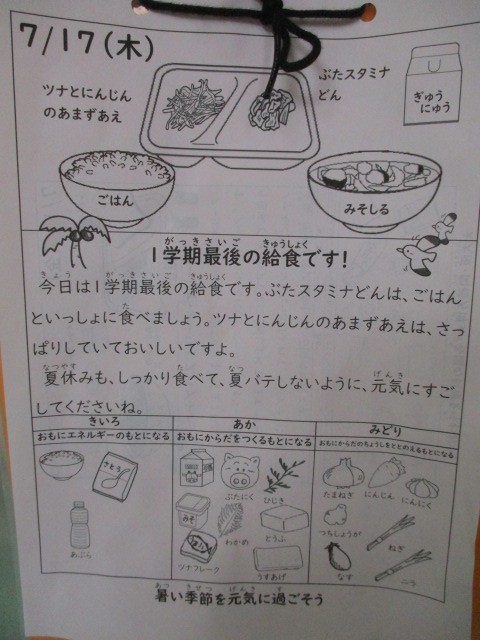 7/17(木)
ツナとにんじん
のあまずあえ
ぶたスタミナ
どん
ぎゅう
にゅう
ごはん
みそしる
がっきさいご きゅうしょく
1学期最後の給食です!
きょう がっきさいご きゅうしょく
今日は1学期最後の給食です。ぶたスタミナどんは、ごはん
た
といっしょに食べましょう。ツナとにんじんのあまずあえは、さっ
ぱりしていておいしいですよ。
なつやす た なつ げんき
夏休みも、しっかり食べて、夏バテしないように、元気にすご
してくださいね。
きいろ
おもにエネルギーのもとになる
さとう
あぶら
あか
おもにからだをつくるもとになる
ぶたにく
ひじき
みそ
わかめ
とうふ
ツナフレーク
うすあげ
みどり
おもにからだのちょうしをととのえるもとになる
たまねぎ
にんじん
にんにく
つちしょうが
ねぎ
なす
にら
あつ きせつ げんき す
暑い季節を元気に過ごそう